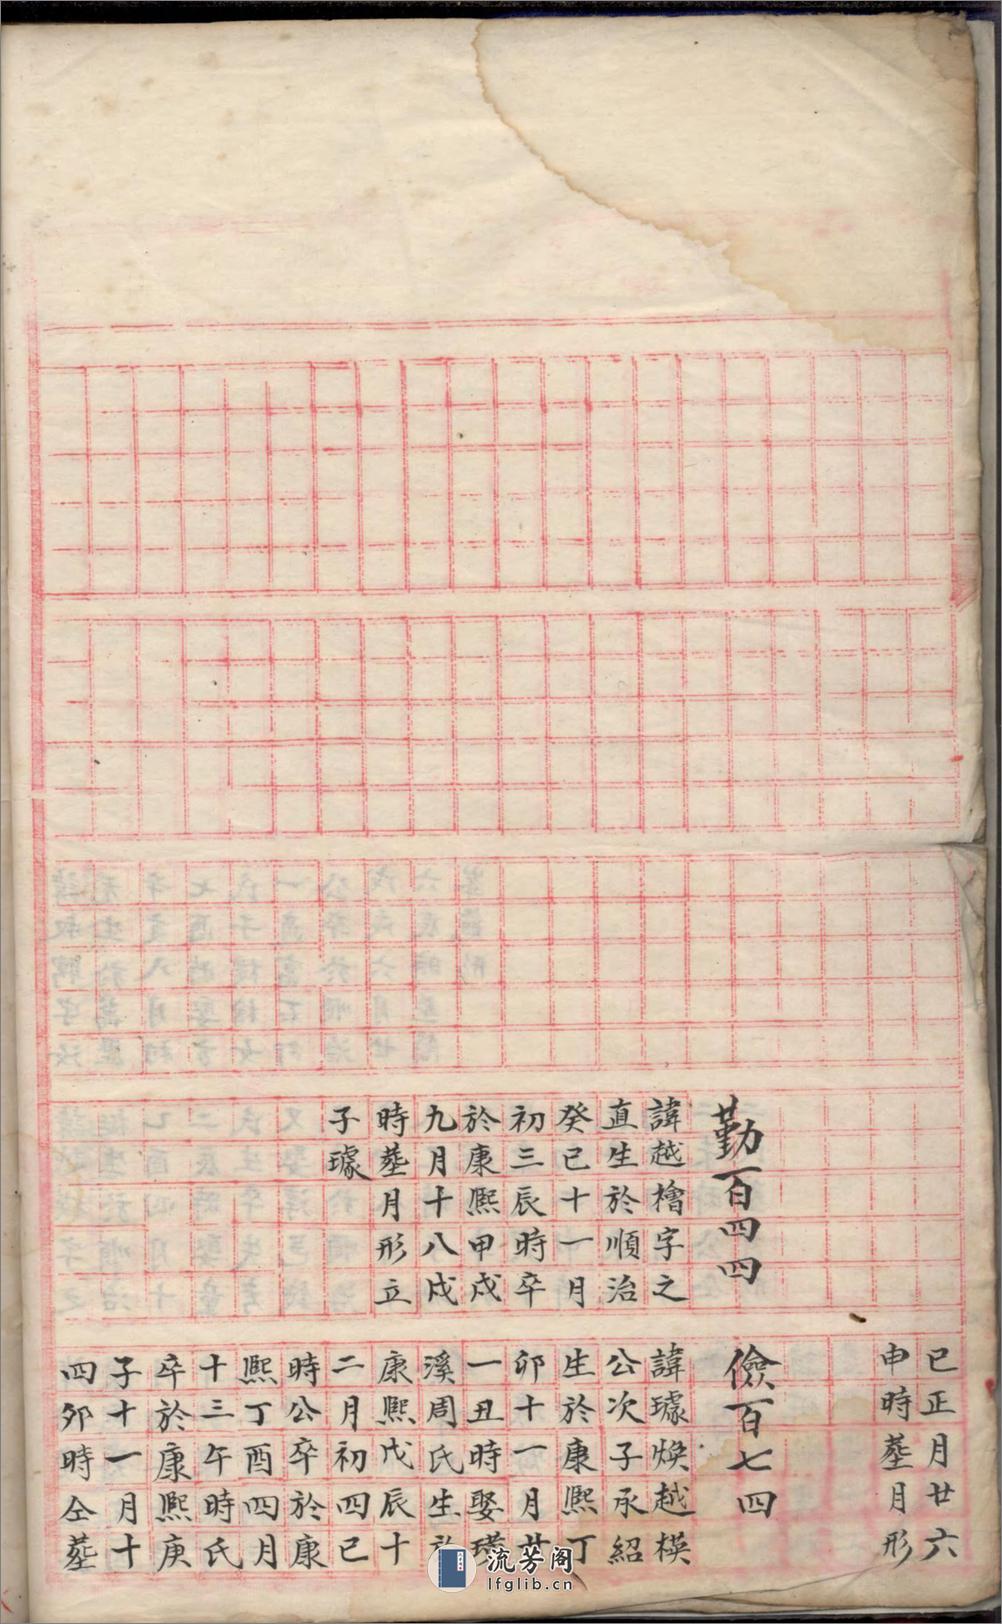 勤百四四
諱越檜字之
直生於順治
癸巳十一月
初三辰時卒
於康熙甲戌
九月十八戌
時塟月形立
子璩
巳正月廿六
申時塟月形
儉百七四
諱璩煥越模
公次子承紹
生於康熙丁
卯十一月廿
一丑時娶璜
溪周氏生於
康熙戊辰十
二月初四巳
時公卒於康
熙丁酉四月
十三午時氏
卒於康熙庚
子十一月十
四夘時仝塟
流芳阁
lfglib.cn